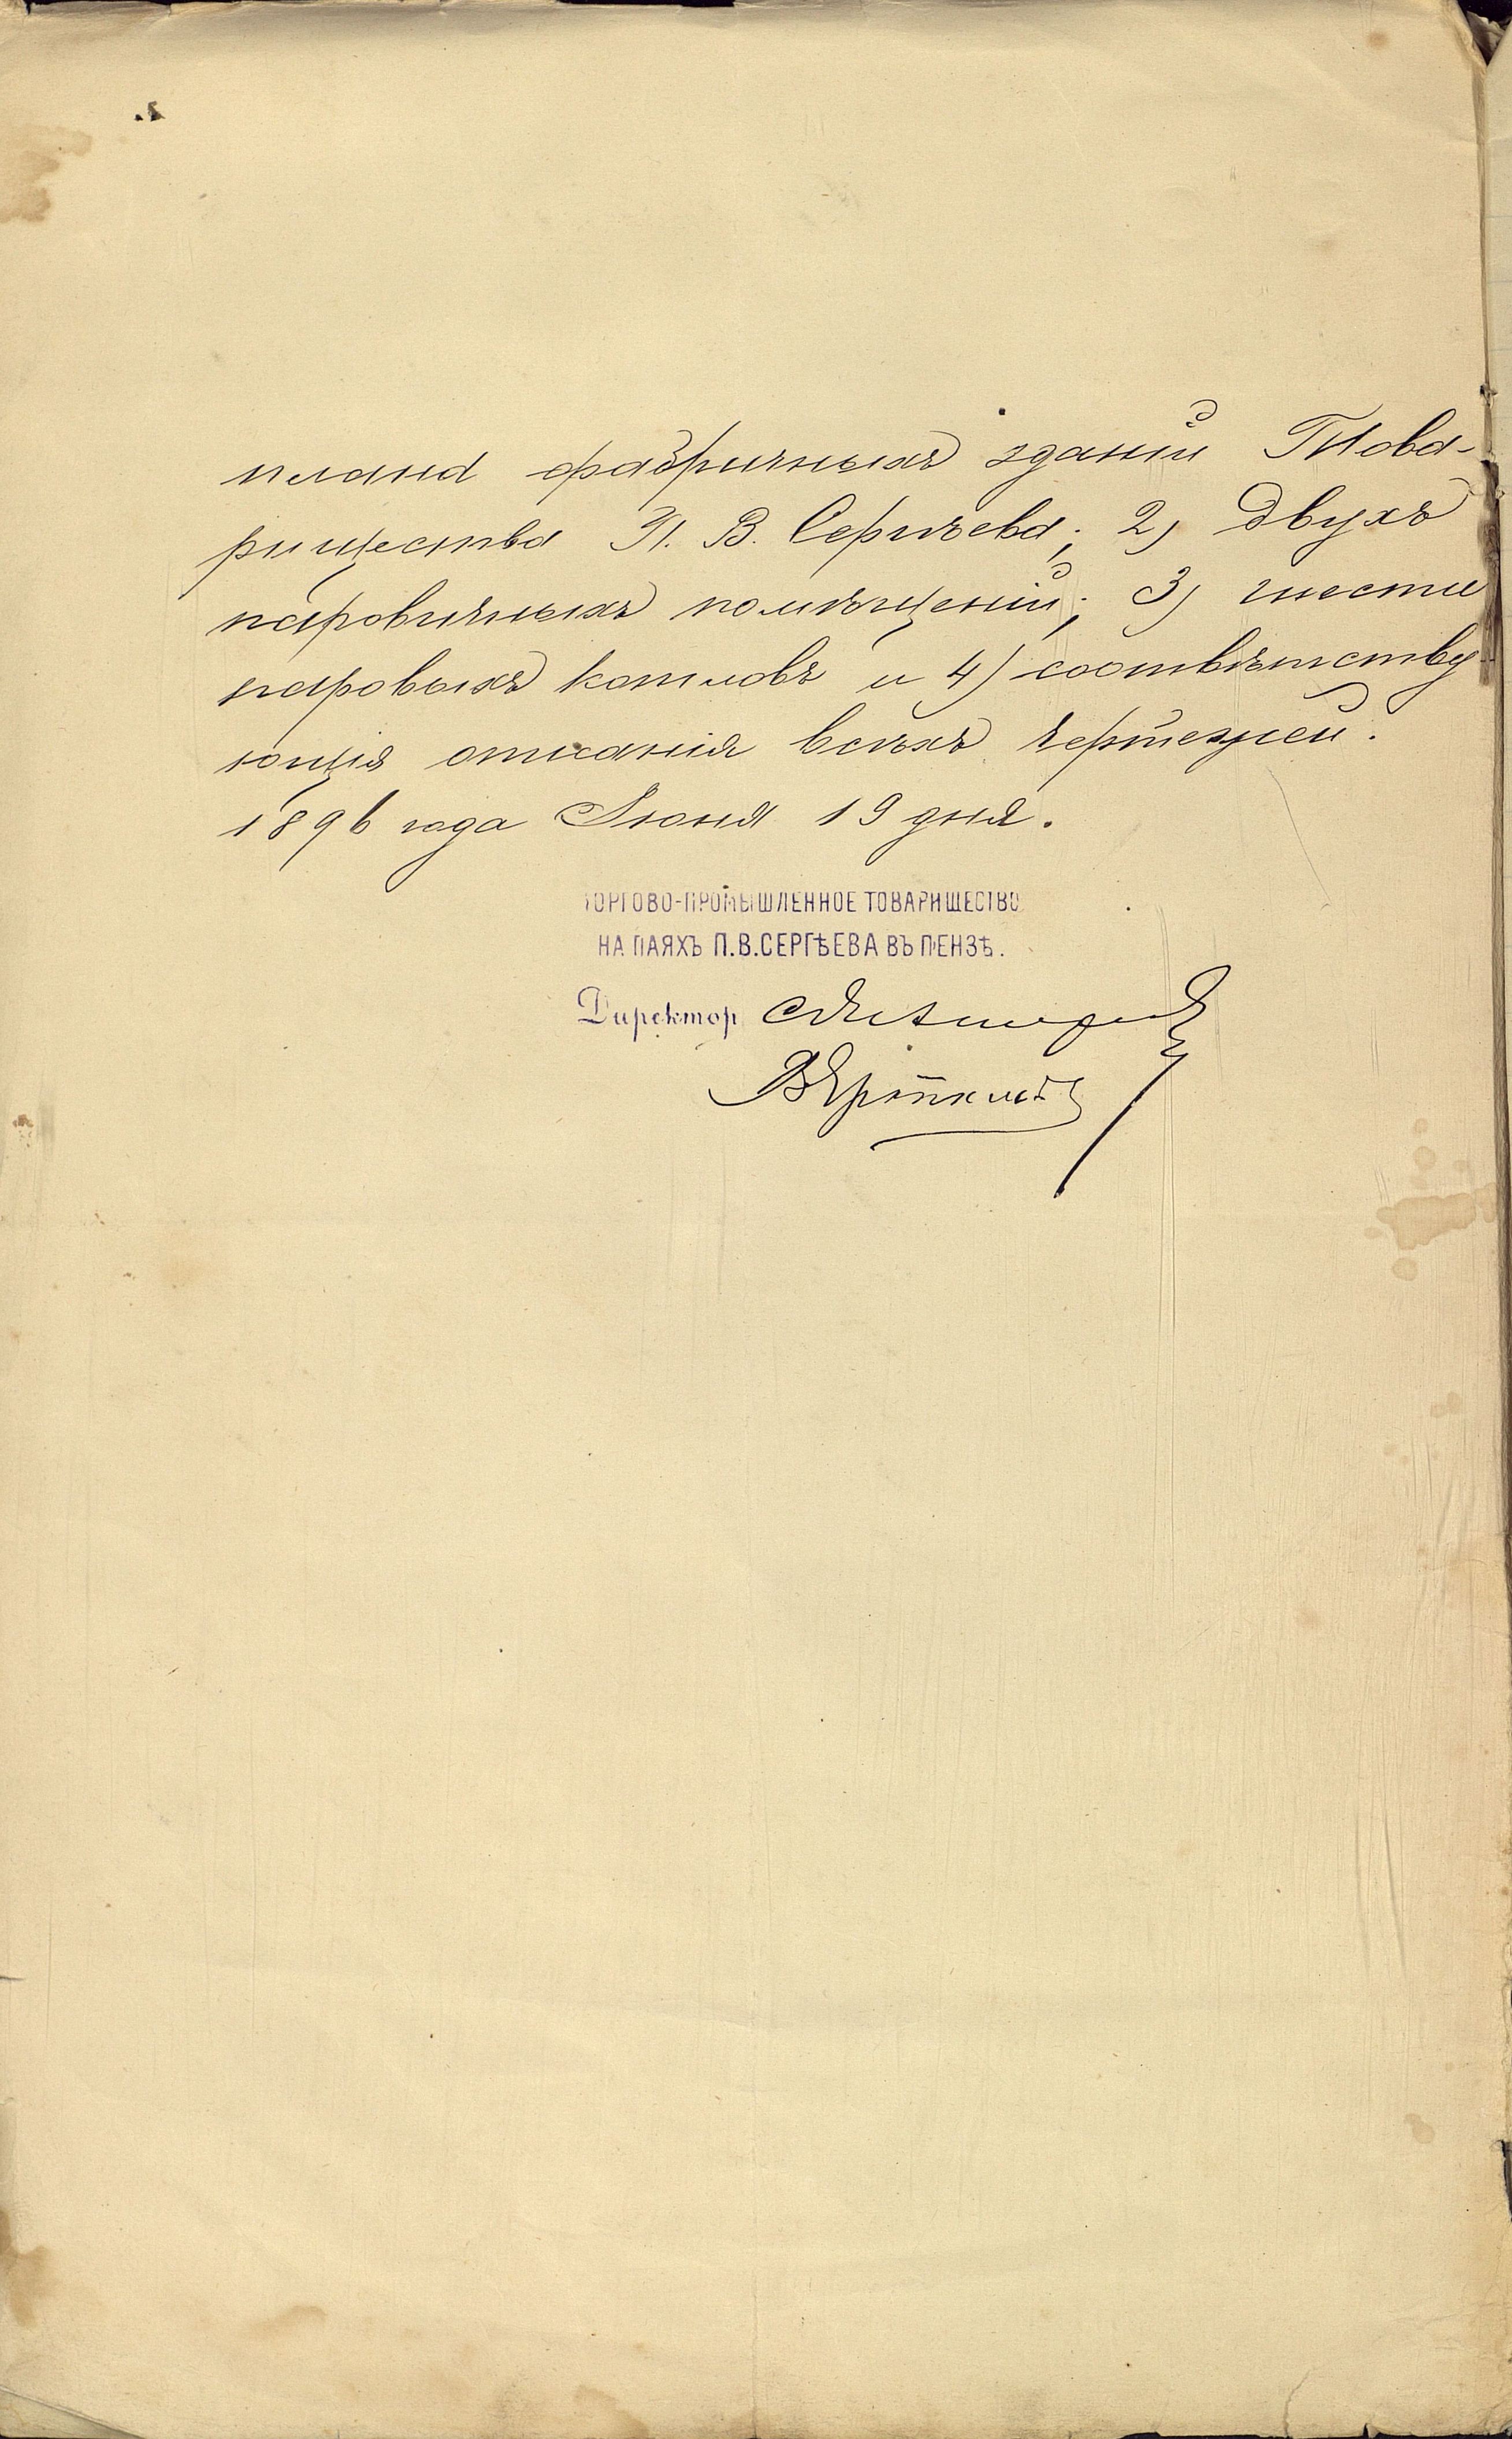 плана фабричныхъ зданій Това-
рищества П. В. Сергѣева; 2) двухъ
паровичныхъ помѣщеній; 3) шести
паровыхъ котловъ и 4) соотвѣтству-
ющія описанія всѣхъ чертежей.
1896 года Іюня 19 дня.
ТОРГОВО-ПРОМЫШЛЕННОЕ ТОВАРИЩЕСТВО
НА ПАЯХЪ П.В.СЕРГѢЕВА ВЪ ПЕНЗѢ.
Директор